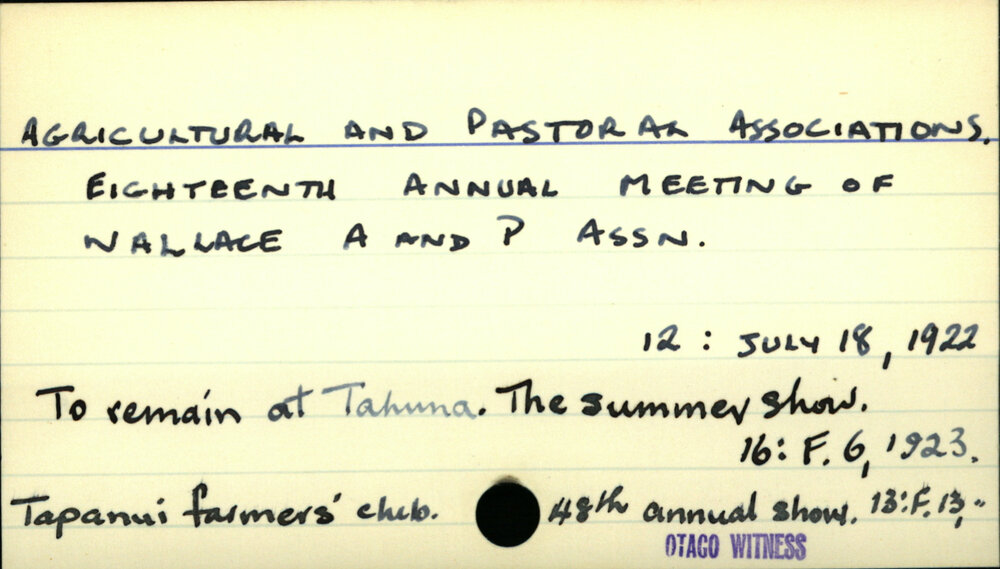 AGRICULTURAL AND PASTORAL ASSOCIATIONS.
EIGHTEENTH ANNUAL MEETING OF
WALLACE A AND P ASSN.
12 : JULY 18, 1922
To remain at Tahuna. The summer show.
16: F. 6, 1923.
Tapanui farmers' club. 48th annual show. 13:F.13, "
OTAGO WITNESS